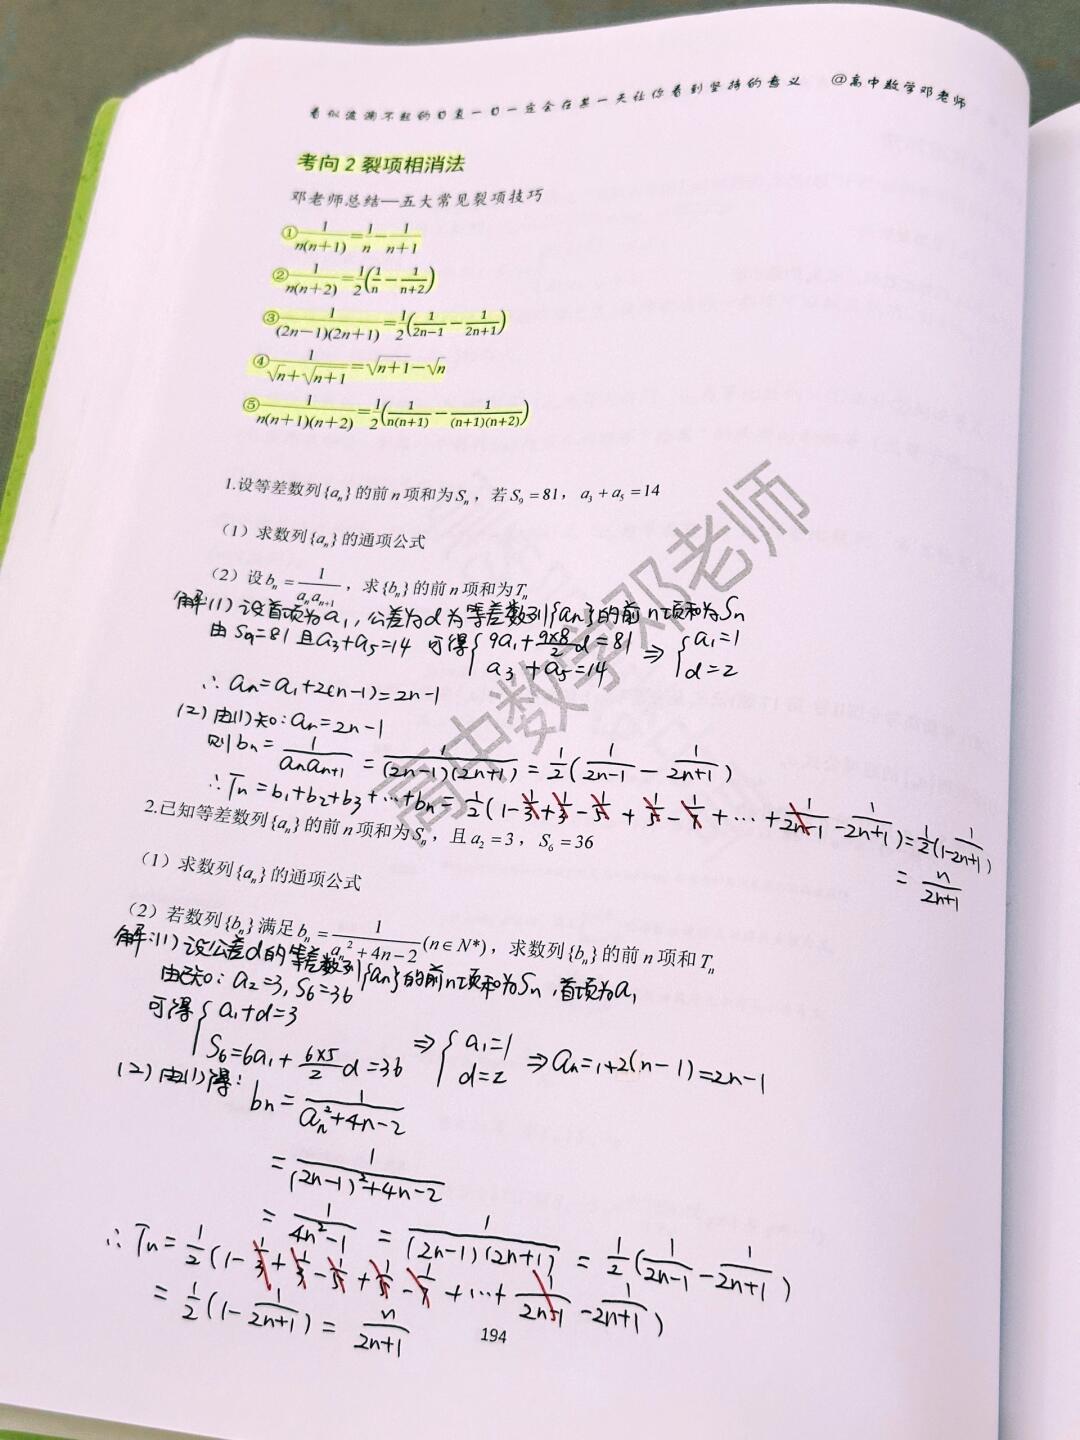 看似波澜不起的日复一日一定会在某一天让你看到坚持的意义 @高中数学邓老师
考向2裂项相消法
邓老师总结—五大常见裂项技巧
①1/n(n+1)=1/n-1/(n+1)
②1/n(n+2)=1/2(1/n-1/(n+2))
③1/(2n-1)(2n+1)=1/2(1/(2n-1)-1/(2n+1))
④1/(√n+√(n+1))=√(n+1)-√n
⑤1/n(n+1)(n+2)=1/2(1/n(n+1)-1/(n+1)(n+2))
1.设等差数列{aₙ}的前n项和为Sₙ，若S₉=81，a₃+a₅=14
（1）求数列{aₙ}的通项公式
（2）设bₙ=1/(aₙaₙ₊₁)，求{bₙ}的前n项和为Tₙ
解:(1)设首项为a₁,公差为d为等差数列{an}的前n项和为Sn
由S₉=81且a₃+a₅=14 可得{9a₁+(9×8/2)d=81 ⇒ {a₁=1
a₃+a₅=14 d=2
∴an=a₁+2(n-1)=2n-1
(2)由(1)知:an=2n-1
则bn=1/(anan+1)=1/(2n-1)(2n+1)=1/2(1/(2n-1)-1/(2n+1))
∴Tn=b₁+b₂+b₃+…+bn=1/2(1-1/3+1/3-1/5+1/5-1/7+…+1/(2n-1)-1/(2n+1))=1/2(1-1/(2n+1))
=n/(2n+1)
2.已知等差数列{aₙ}的前n项和为Sₙ，且a₂=3，S₆=36
（1）求数列{aₙ}的通项公式
（2）若数列{bₙ}满足bₙ=1/(aₙ²+4n-2)(n∈N*)，求数列{bₙ}的前n项和Tₙ
解:(1)设公差d的等差数列{an}的前n项和为Sn,首项为a₁
由已知:a₂=3,S₆=36
可得{a₁+d=3
S₆=6a₁+(6×5/2)d=36 ⇒ {a₁=1 d=2 ⇒an=1+2(n-1)=2n-1
(2)由(1)得:bn=1/(an²+4n-2)
=1/((2n-1)²+4n-2)
=1/(4n²-1)=1/(2n-1)(2n+1)=1/2(1/(2n-1)-1/(2n+1))
∴Tn=1/2(1-1/3+1/3-1/5+1/5-1/7+…+1/(2n-1)-1/(2n+1))
=1/2(1-1/(2n+1))=n/(2n+1)
194
高中数学邓老师